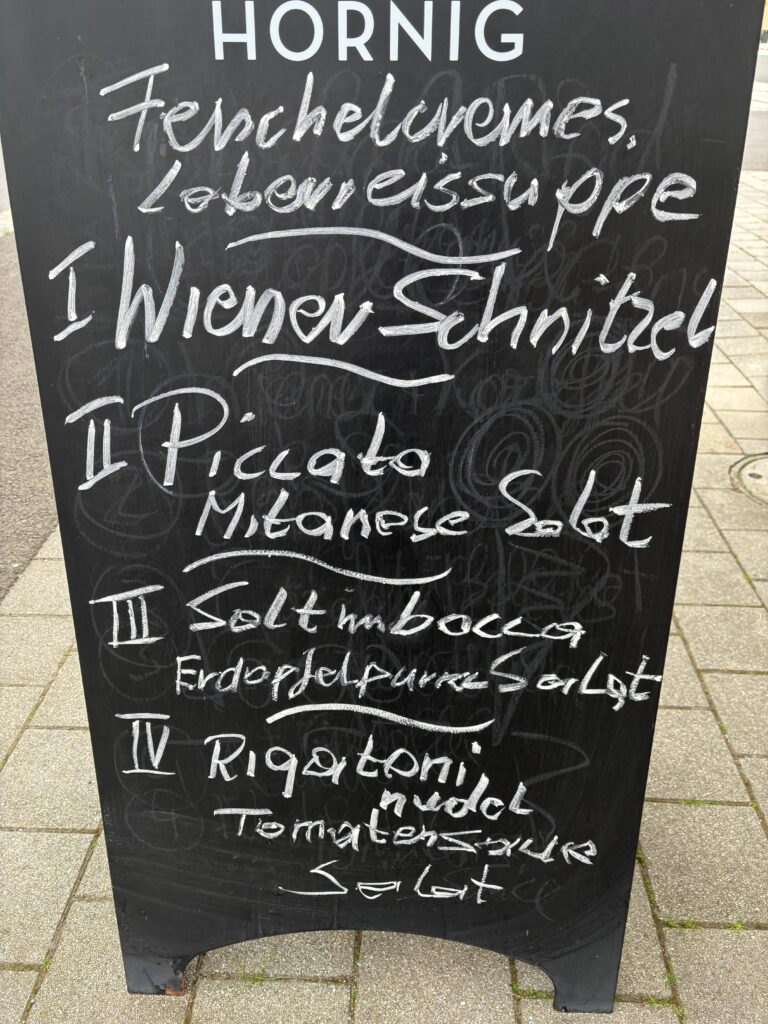 HORNIG
Fenchelcremes.
Leberreissuppe
I Wiener Schnitzel
II Piccata
Milanese Salat
III Saltimbocca
Erdäpfelpüree Salat
IV Rigatoni
nudel
Tomatensauce
Salat